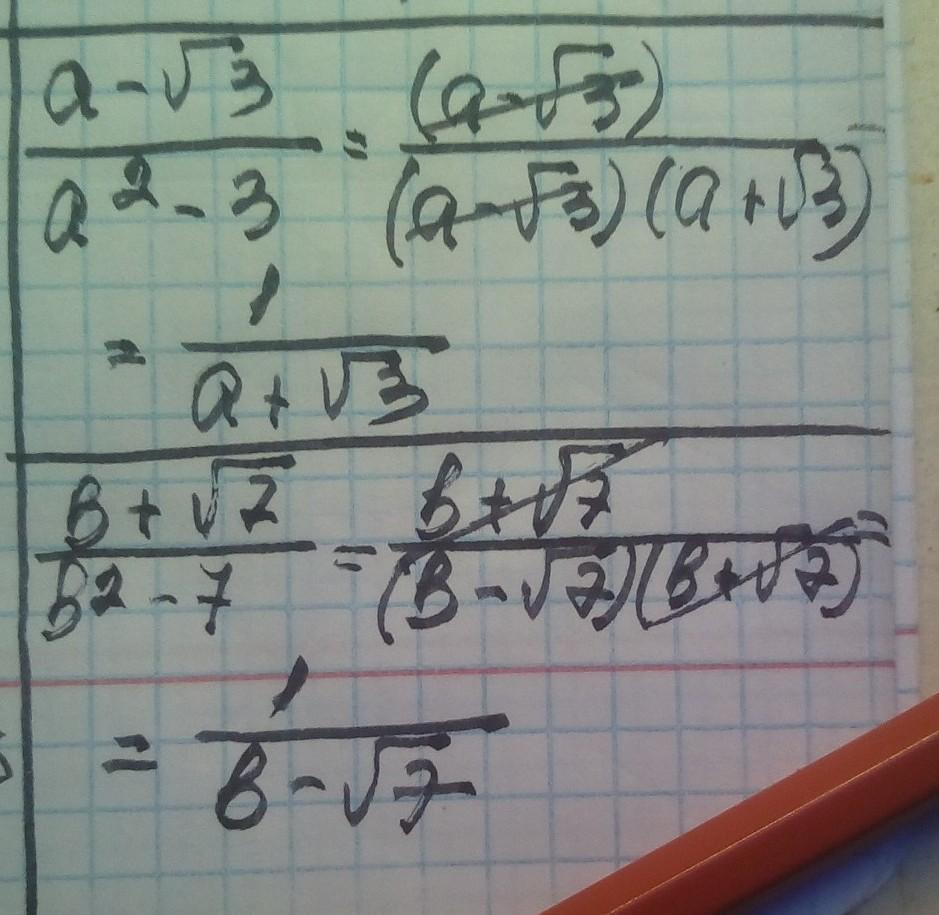 a-√3/a²-3 = (a-√3)/(a-√3)(a+√3) =
= 1/a+√3
b+√7/b²-7 = b+√7/(b-√7)(b+√7) =
= 1/b-√7